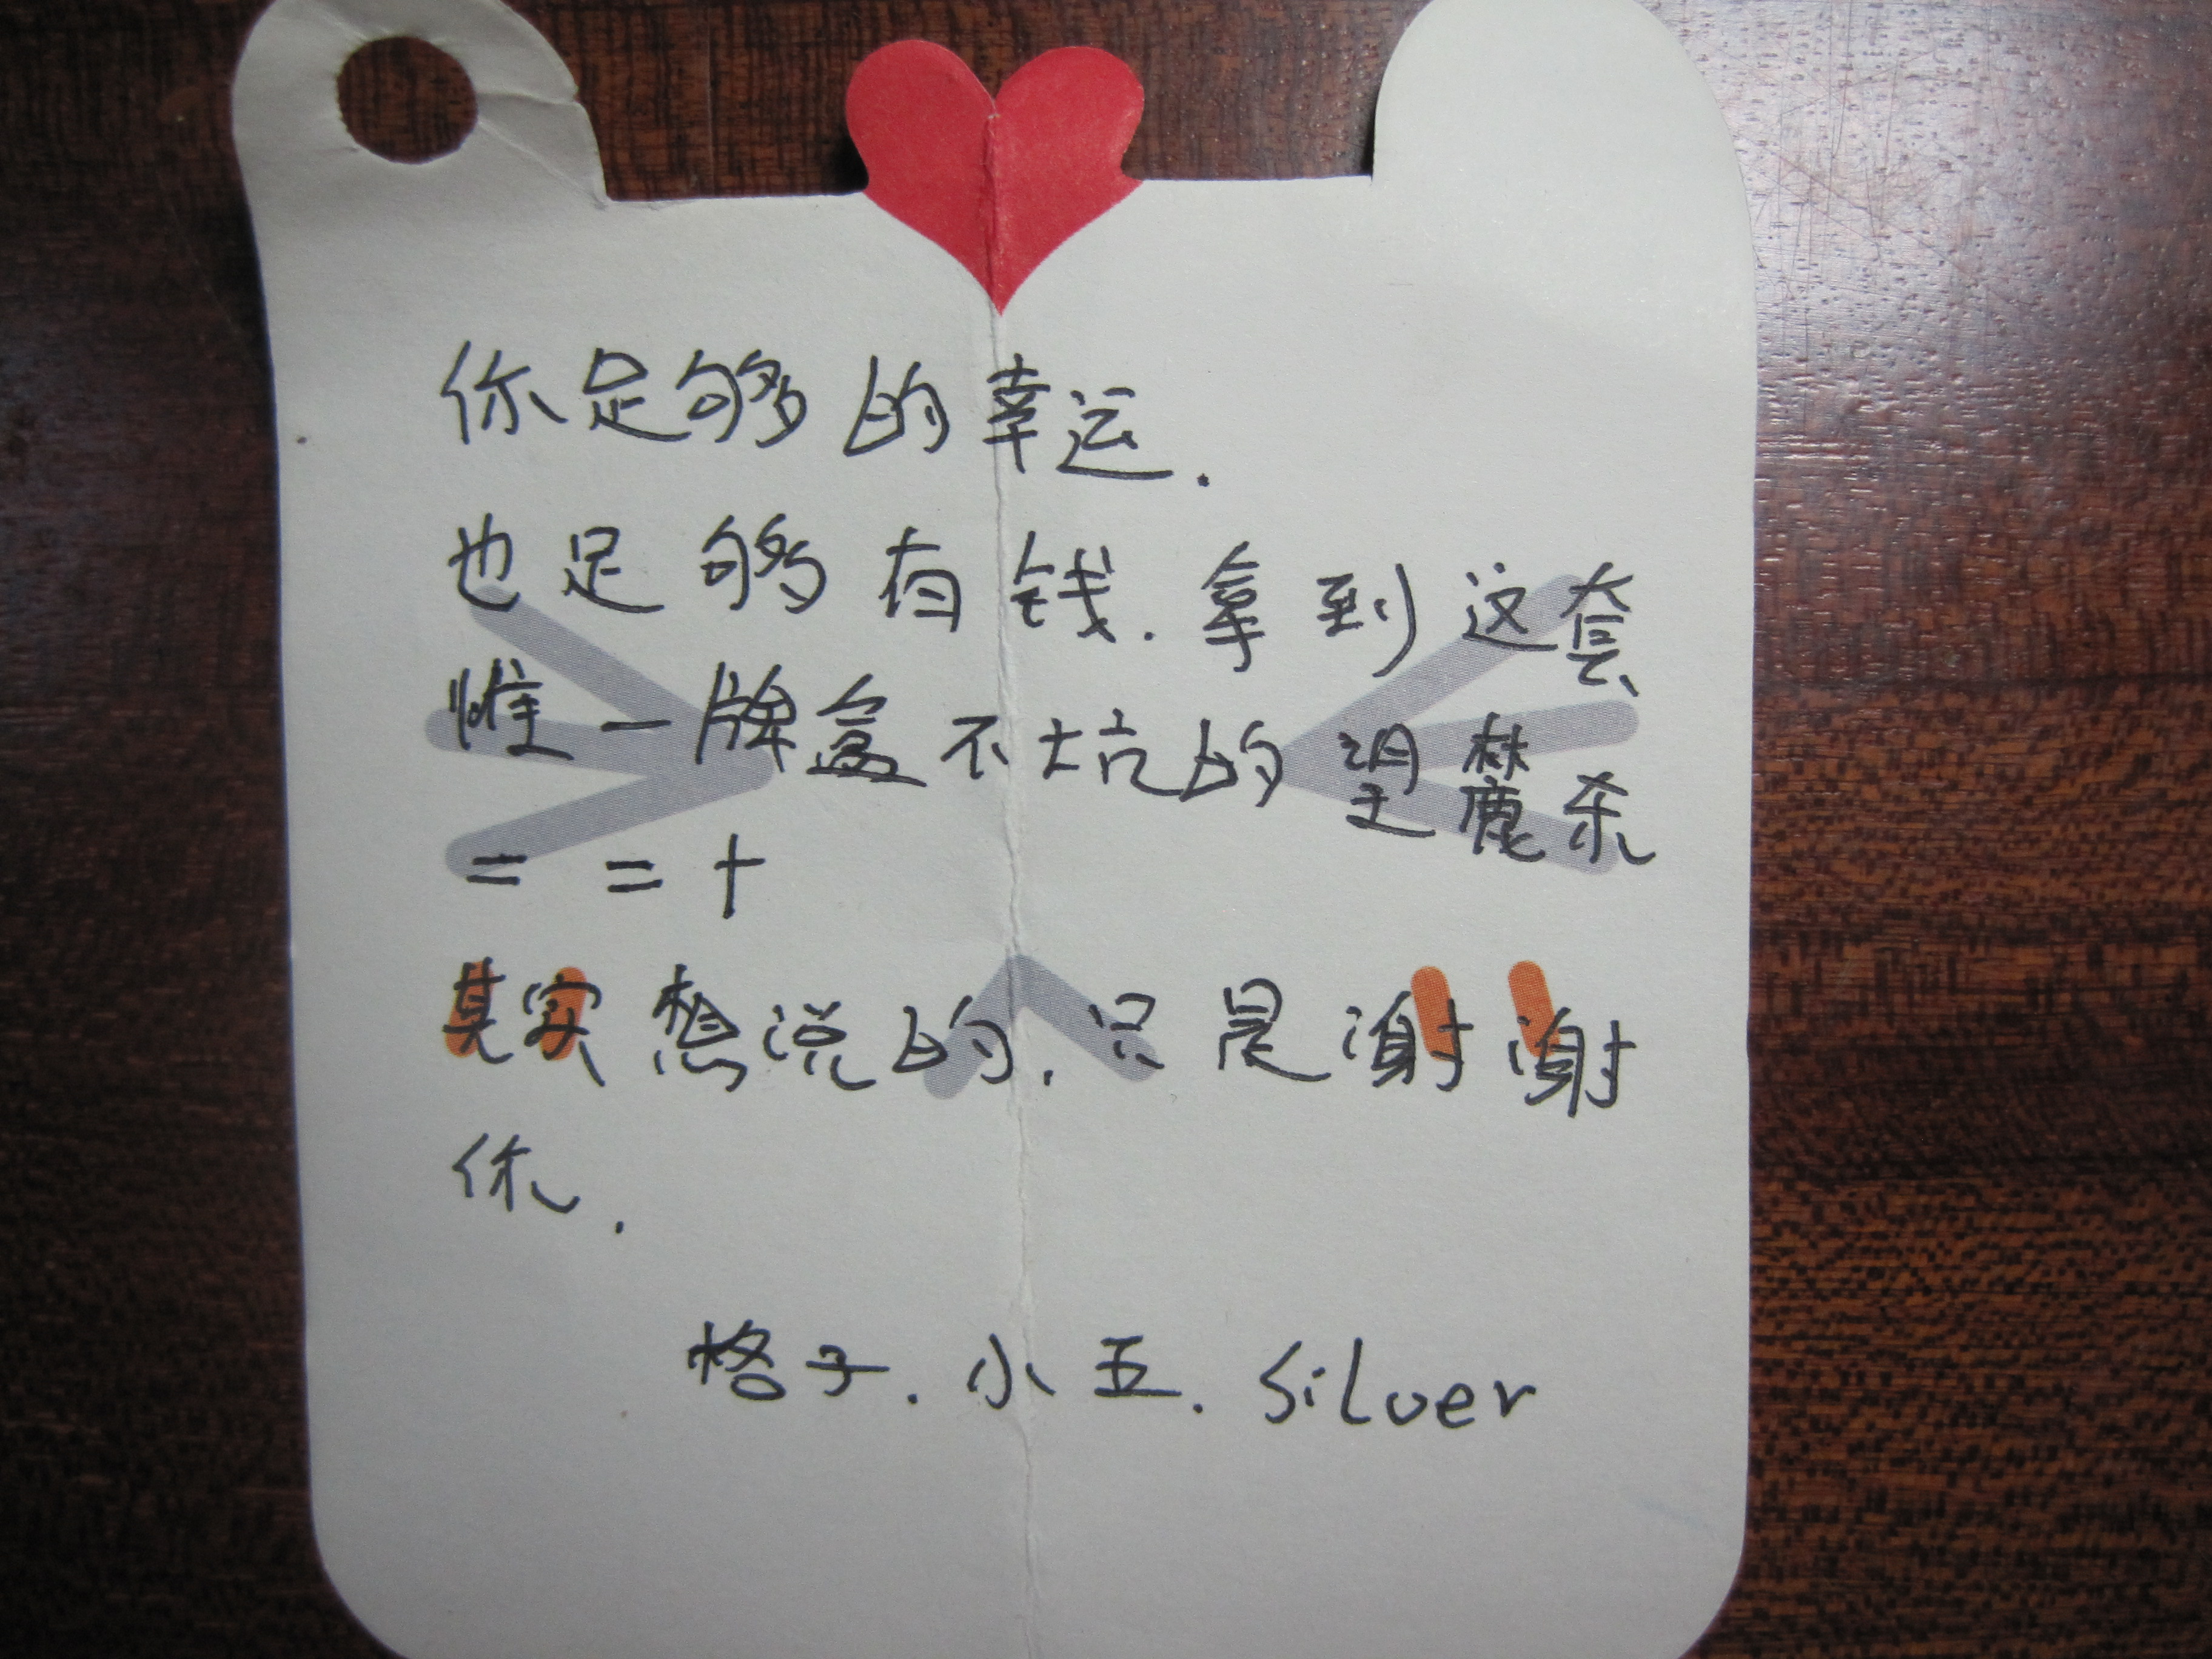 你足够的幸运.
也足够有钱.拿到这套
惟一牌盒不坑的望魔杀
= = +
其实想说的.只是谢谢
你.
格子.小五.Silver